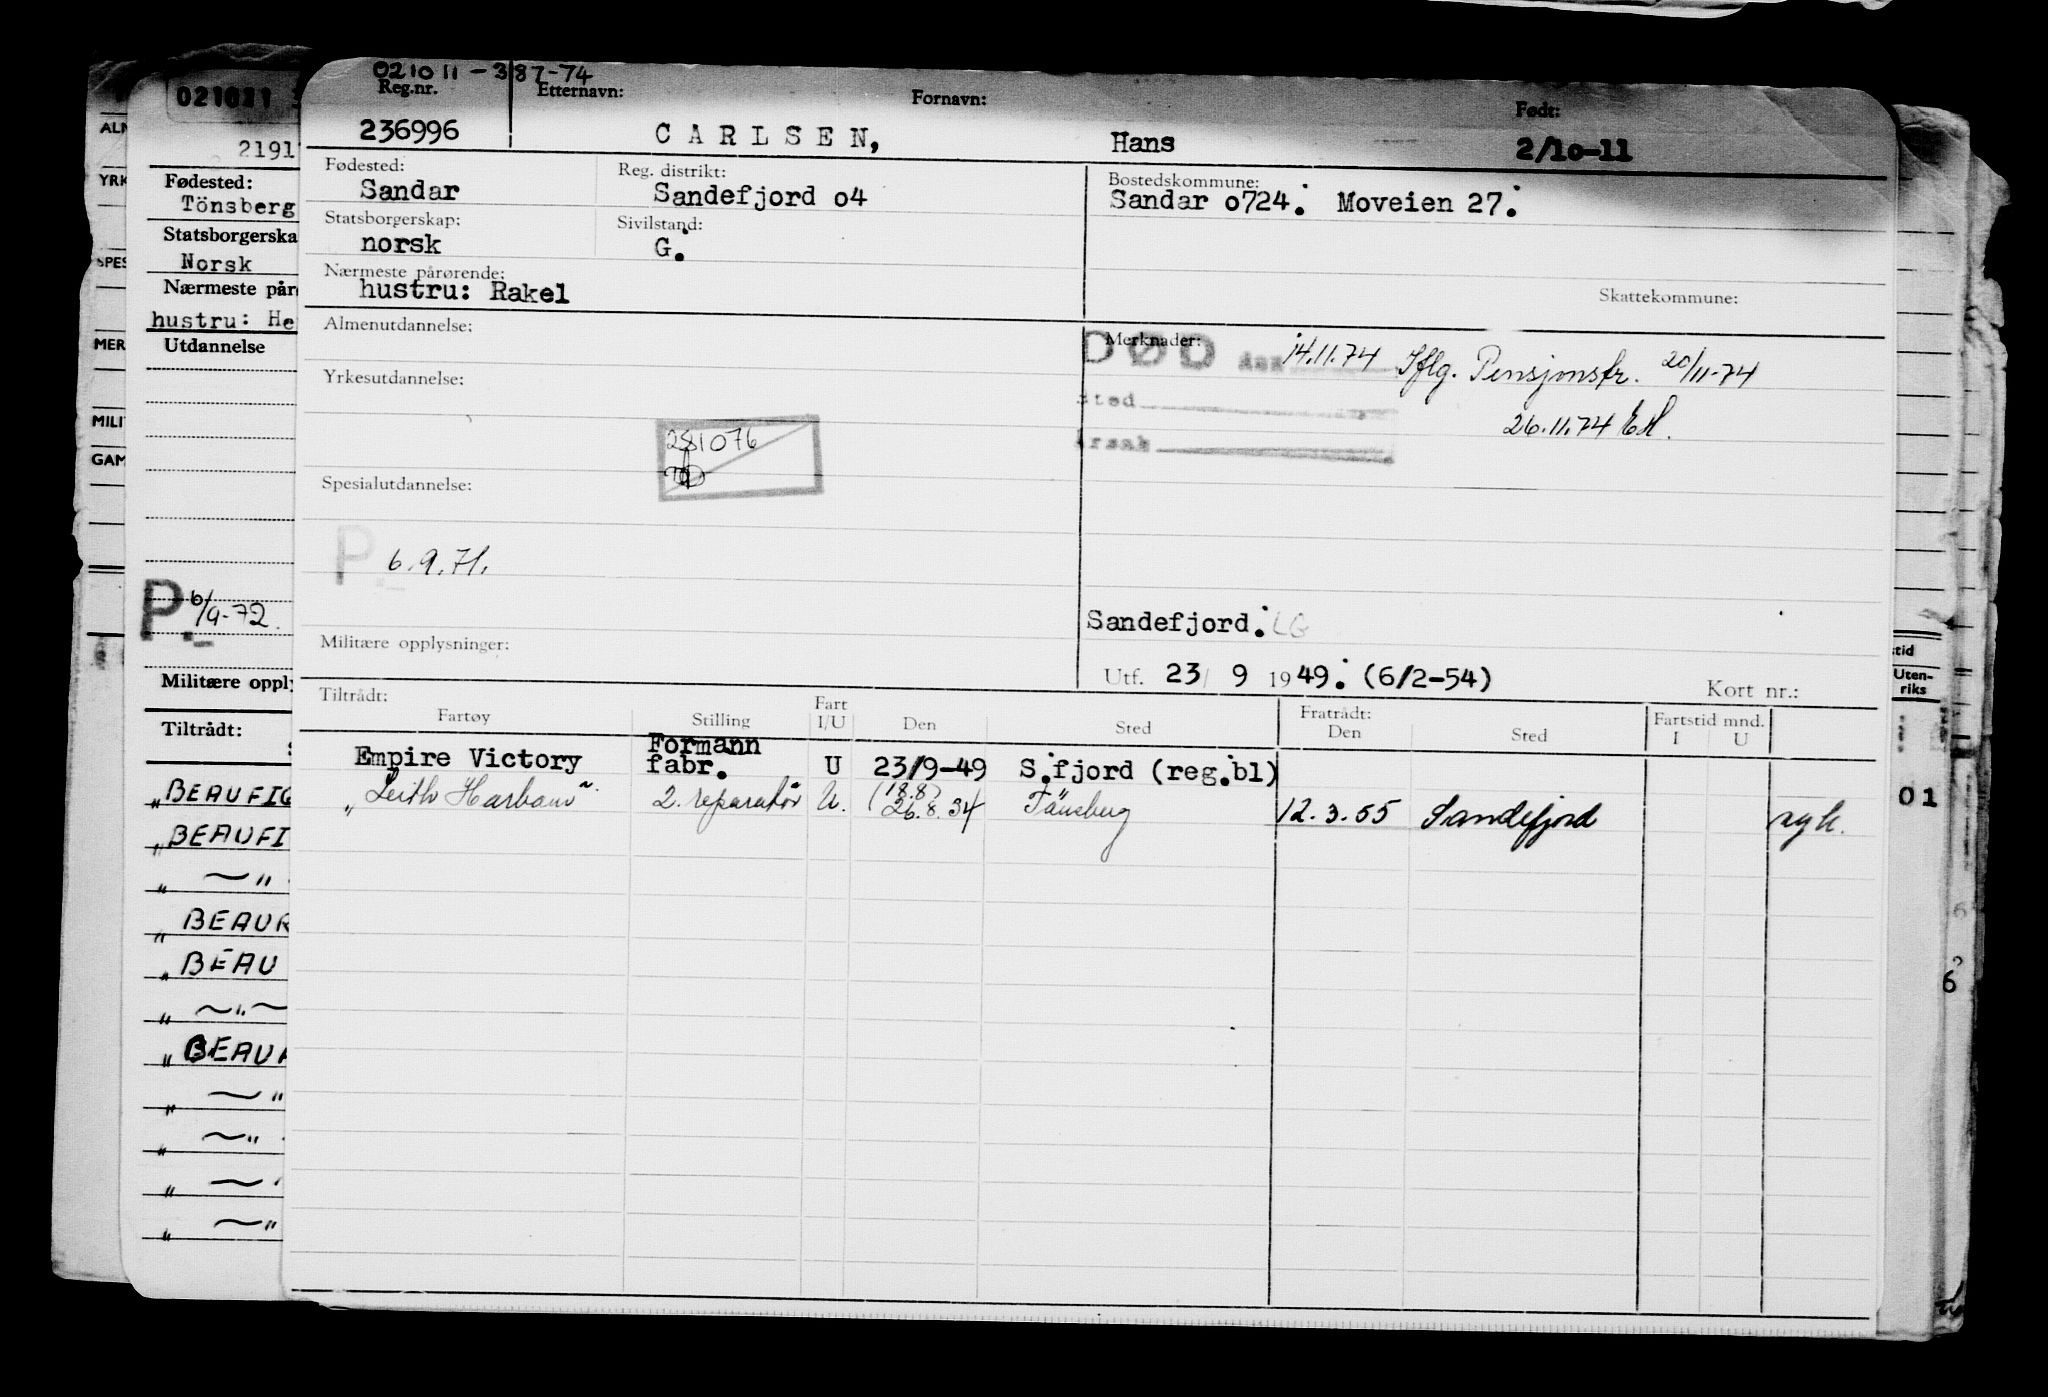 021011-387-74
Reg.nr. Etternavn: Fornavn: Født:
236996 CARLSEN, Hans 2/10-11
Fødested: Reg. distrikt: Bostedskommune:
Sandar Sandefjord o4 Sandar o724. Moveien 27.
Statsborgerskap: Sivilstand:
norsk G.
Nærmeste pårørende:
hustru: Rakel
Skattekommune:
Almenutdannelse: Merknader:
DØD den 14.11.74 Iflg. Pensjonstr. 20/11-74
Yrkesutdannelse:
sted
26.11.74 EH.
årsak
281076
Spesialutdannelse:
P. 6.9.71.
Sandefjord. LG
Militære opplysninger:
Utf. 23/ 9 1949. (6/2-54)
Kort nr.:
Tiltrådt: Fratrådt:
Fartøy Stilling Fart I/U Den Sted Den Sted Fartstid mnd. I U
Empire Victory Formann fabr. U 23/9-49 S.fjord (reg.bl)
" Leith Harbour " 2. reparatör U. (18.8) 26.8.54 Tönsberg 12.3.55 Sandefjord
021011
2191
Fødested:
Tönsberg
Statsborgerska
Norsk
Nærmeste pår
hustru: He
Utdannelse
P. 6/9-72.
Militære oppl
Tiltrådt:
" BEAUFI
" BEAUFI
" — " —
" BEAUR
" BEAU
" — " —
" BEAU
" — "
" — "
" —
" — "
ALM
YRK
SPES
MER
MILI
GAM
tid
Uten-
riks
01
6